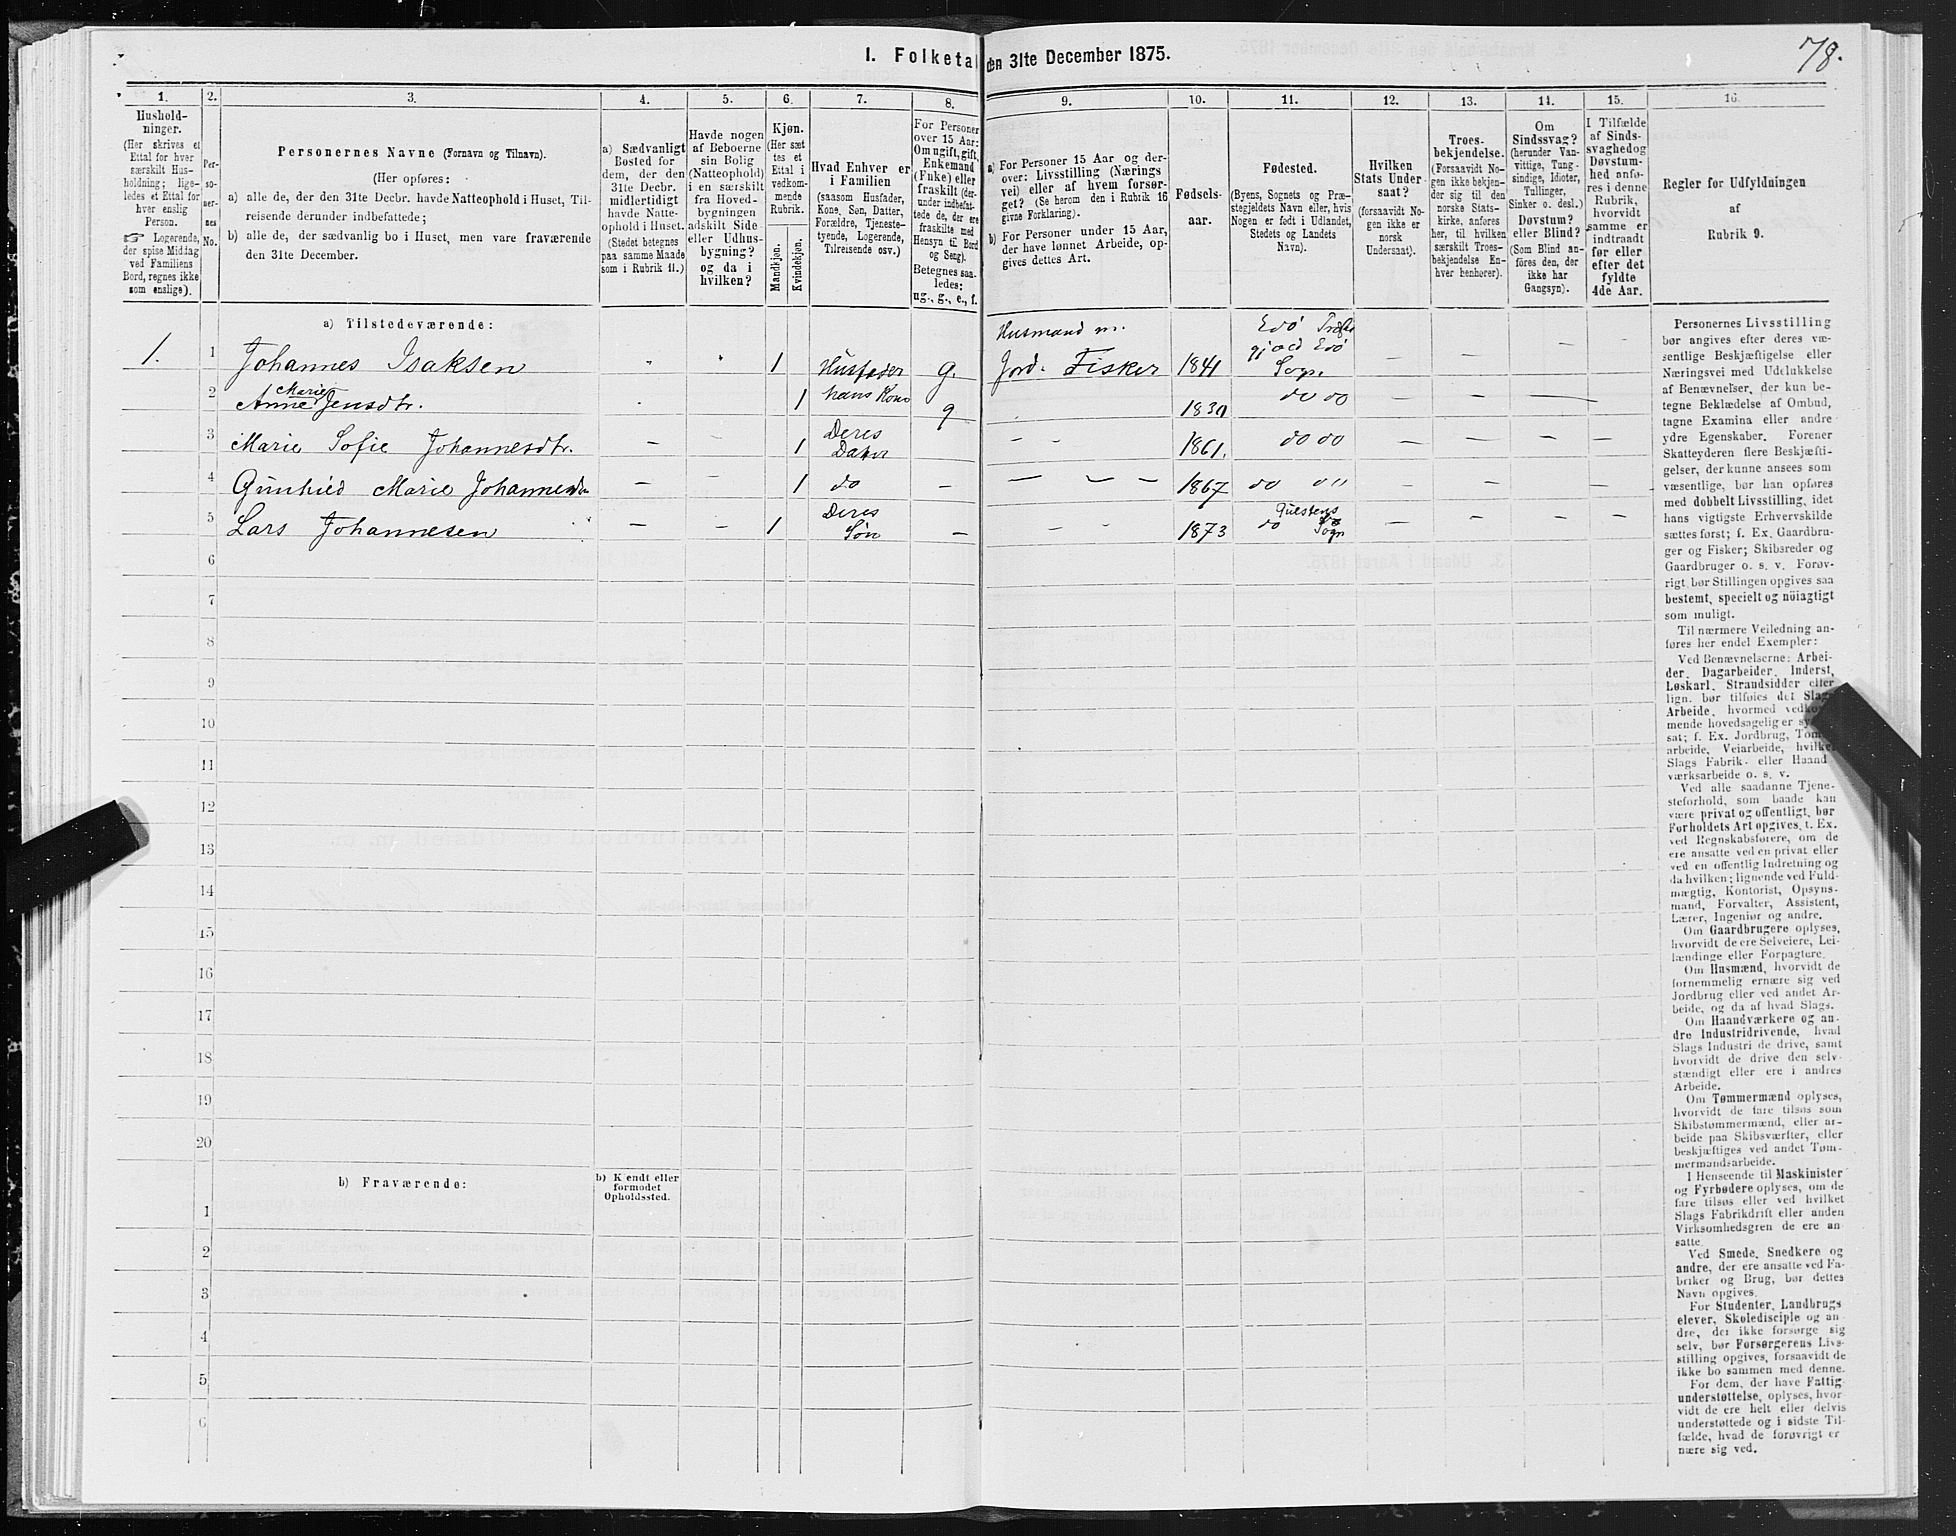 I. Folketal den 31te December 1875.
78.
1.
Hushold-
ninger.
(Her skrives et
Ettal for hver
særskilt Hus-
holdning; lige-
ledes et Ettal for
hver enslig
Person.
☞ Logerende,
der spise Middag
ved Familiens
Bord, regnes ikke
som enslige).
2.
Per-
so-
ner-
nes
No.
3.
Personernes Navne (Fornavn og Tilnavn).
(Her opføres:
a) alle de, der den 31te Decbr. havde Natteophold i Huset, Til-
reisende derunder indbefattede;
b) alle de, der sædvanlig bo i Huset, men vare fraværende
den 31te December.
4.
a) Sædvanligt
Bosted for
dem, der den
31te Decbr.
midlertidigt
havde Natte-
ophold i Huset.
(Stedet betegnes
paa samme Maade
som i Rubrik 11.)
5.
Havde nogen
af Beboerne
sin Bolig
(Natteophold)
i en særskilt
fra Hoved-
bygningen
adskilt Side-
eller Udhus-
bygning?
og da i
hvilken?
6.
Kjøn.
(Her sæt
tes et
Ettal i
vedkom-
mende
Rubrik.
Mandkjøn.
Kvindekjøn.
7.
Hvad Enhver er
i Familien
(saasom Husfader,
Kone, Søn, Datter,
Forældre, Tjeneste-
tyende, Logerende,
Tilreisende osv.)
8.
For Personer
over 15 Aar:
Om ugift, gift,
Enkemand
(Enke) eller
fraskilt (der-
under indbefat-
tede de, der ere
fraskilte med
Hensyn til Bord
og Seng).
Betegnes saa-
ledes:
ug., g., e., f.
9.
a) For Personer 15 Aar og der-
over: Livsstilling (Nærings
vei) eller af hvem forsør-
get? (Se herom den i Rubrik 16
givne Forklaring).
b) For Personer under 15 Aar,
der have lønnet Arbeide, op-
gives dettes Art.
10.
Fødsels-
aar.
11.
Fødested.
(Byens, Sognets og Præ-
stegjeldets Navn eller, hvis
Nogen er født i Udlandet,
Stedets og Landets
Navn).
12.
Hvilken
Stats Under-
saat?
(forsaavidt No-
gen ikke er
norsk
Undersaat).
13.
Troes-
bekjendelse.
(Forsaavidt No-
gen ikke bekjen-
der sig til den
norske Stats-
kirke, anføres
her, til hvilken
særskilt Troes-
bekjendelse En-
hver henhører).
14.
Om
Sindssvag?
(herunder Van-
vittige, Tung-
sindige, Idioter,
Tullinger,
Sinker o. desl.)
Døvstum?
eller Blind?
(Som Blind an-
føres den, der
ikke har
Gangsyn).
15.
I Tilfælde
af Sinds-
svaghed og
Døvstum-
hed anfø-
res i denne
Rubrik,
hvorvidt
samme er
indtraadt
før eller
efter det
fyldte
4de Aar.
16.
Regler for Udfyldningen
af
Rubrik 9.
a) Tilstedeværende:
1. 1 Johannes Isaksen 1 Husfader g. Husmand m. Jord. Fisker 1841 Edö Præste gjæld Edö Sogn — — — —
2 Anne Marie Jensdtr. 1 hans Kone g 1830 do do — — — —
3 Marie Sofie Johannesdtr. — — 1 Deres Datter — — 1861. do do — — — —
4 Gunhild Marie Johannesdtr — — 1 do — — — — 1867 do do — — — —
5 Lars Johannesen — — 1 Deres Søn — — — 1873 do do Sogn — — — —
6
7
8
9
10
11
12
13
14
15
16
17
18
19
20
b) Fraværende:
b) Kjendt eller
formodet
Opholdssted.
1
2
3
4
5
6
Personernes Livsstilling
bør angives efter deres væ-
sentlige Beskjæftigelse eller
Næringsvei med Udelukkelse
af Benævnelser, der kun be-
tegne Beklædelse af Ombud,
tagne Examina eller andre
ydre Egenskaber. Forener
Skatteyderen flere Beskjæfti-
gelser, der kunne ansees som
væsentlige, bør han opføres
med dobbelt Livsstilling, idet
hans vigtigste Erhvervskilde
sættes først; f. Ex. Gaardbru-
ger og Fisker; Skibsreder og
Gaardbruger o. s. v. Forøv-
rigt bør Stillingen opgives saa
bestemt, specielt og nöiagtigt
som muligt.
Til nærmere Veiledning an-
føres her endel Exempler:
Ved Benævnelserne: Arbei-
der, Dagarbeider, Inderst,
Løskarl, Strandsidder eller
lign. bør tilføies det Slags
Arbeide, hvormed vedkom-
mende hovedsagelig er syssel-
sat; f. Ex. Jordbrug, Tømmer-
arbeide, Veiarbeide, hvilket
Slags Fabrik- eller Haand-
værksarbeide o. s. v.
Ved alle saadanne Tjene-
steforhold, som baade kan
være privat og offentligt, bør
Forholdets Art opgives, t. Ex.
ved Regnskabsførere, om de
ere ansatte ved en privat eller
ved en offentlig Indretning og
da hvilken; lignende ved Fuld-
mægtig, Kontorist, Opsyns-
mand, Forvalter, Assistent,
Lærer, Ingeniør og andre.
Om Gaardbrugere oplyses,
hvorvidt de ere Selveiere, Lei-
lændinge eller Forpagtere.
Om Husmænd, hvorvidt de
fornemmelig ernære sig ved
Jordbrug eller ved andet Ar-
beide, og da af hvad Slags.
Om Haandværkere og an-
dre Industridrivende, hvad
Slags Industri de drive, samt
hvorvidt de drive den selv-
stændigt eller ere i andres
Arbeide.
Om Tømmermænd oplyses,
hvorvidt de fare tilsøs som
Skibstømmermænd, eller ar-
beide paa Skibsværfter, eller
beskjæftiges ved andet Tøm-
mermandsarbeide.
I Henseende til Maskinister
og Fyrbødere oplyses, om de
fare tilsøs eller ved hvilket
Slags Fabrikdrift eller anden
Virksomhedsgren de ere an-
satte.
Ved Smede, Snedkere og
andre, der ere ansatte ved Fa-
briker og Brug, bør dettes
Navn opgives.
For Studenter, Landbrugs
elever, Skoledisciple og an-
dre, der ikke forsørge sig
selv, bør Forsørgerens Livs-
stilling opgives, forsaavidt de
ikke bo sammen med denne.
For dem, der have Fattig-
understøttelse, oplyses, hvor-
vidt de ere helt eller delvis
understøttede og i sidste Til-
fælde, hvad de forøvrigt er
nære sig ved.